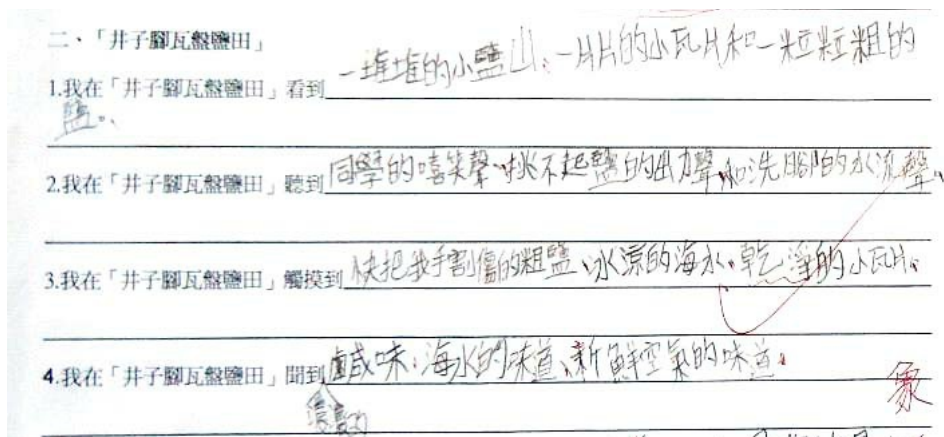 二、「井子腳瓦盤鹽田」
1.我在「井子腳瓦盤鹽田」看到一堆堆的小鹽山、一片片的小瓦片和一粒粒粗的
鹽。
2.我在「井子腳瓦盤鹽田」聽到同學的嘻笑聲、挑不起鹽的出力聲和洗腳的水流聲。
3.我在「井子腳瓦盤鹽田」觸摸到快把我手割傷的粗鹽、冰涼的海水、乾淨的小瓦片。
4.我在「井子腳瓦盤鹽田」聞到鹹味、海水的味道、新鮮空氣的味道。
濃濃的